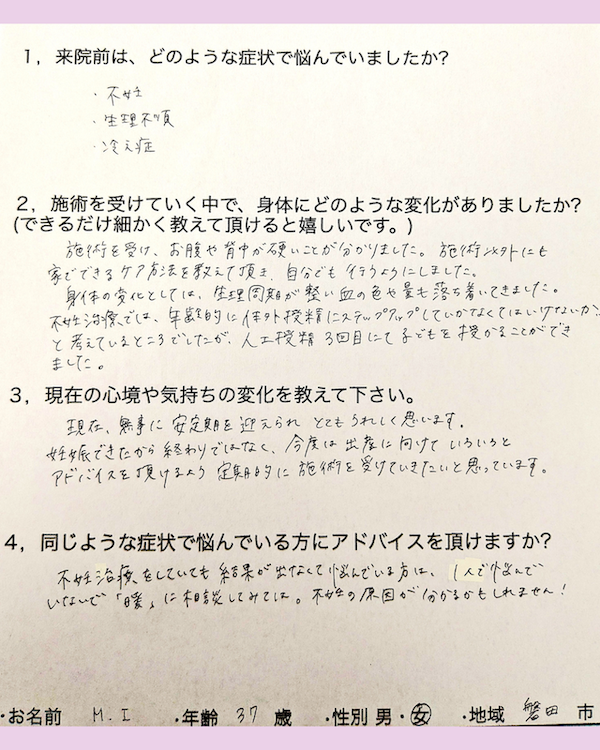 1，来院前は、どのような症状で悩んでいましたか?
・不妊
・生理不順
・冷え症
2，施術を受けていく中で、身体にどのような変化がありましたか?
(できるだけ細かく教えて頂けると嬉しいです。)
施術を受け、お腹や背中が硬いことが分かりました。施術以外にも
家でできるケア方法を教えて頂き、自分でも行うようにしました。
身体の変化としては、生理周期が整い血の色や量も落ち着いてきました。
不妊治療では、年齢的に体外授精にステップアップしていかなくてはいけないか
と考えているところでしたが、人工授精3回目にて子どもを授かることができ
ました。
3，現在の心境や気持ちの変化を教えて下さい。
現在、無事に安定期を迎えられとてもうれしく思います。
妊娠できたから終わりではなく、今度は出産に向けていろいろと
アドバイスを頂けるよう定期的に施術を受けていきたいと思っています。
4，同じような症状で悩んでいる方にアドバイスを頂けますか?
不妊治療をしていても結果が出なくて悩んでいる方は、1人で悩んで
いないで「暖」に相談してみては。不妊の原因が分かるかもしれません!
・お名前 M.I ・年齢 37 歳 ・性別 男・女 ・地域 磐田 市